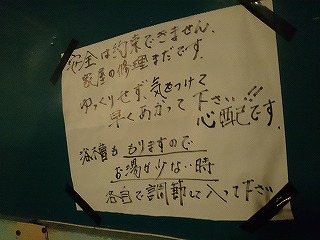 安全は約束できません、
家屋の修理まだです.
ゆっくりせず、気をつけて
早くあがって下さい!!
心配です.
浴槽ももりますので
お湯が少ない時
各自で調節して入って下さい